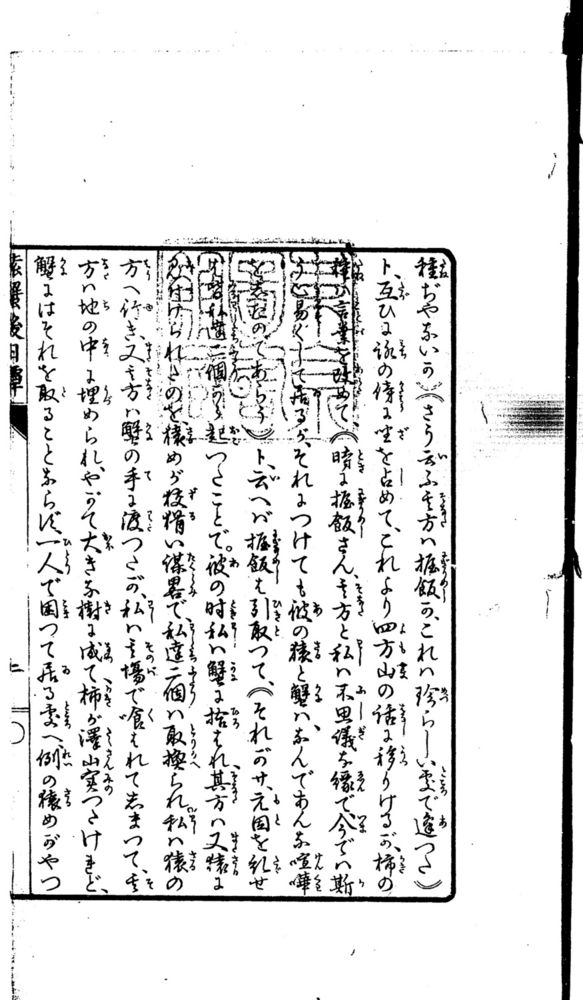 種ぢやないか》《さう云ふ其方ハ握飯か、これハ珍らしい處で逢つた》
ト、互ひに詠の傍に坐を占めて、これより四方山の話に移りけるが、柿の
種ハ言葉を改めて、《時に握飯さん、其方と私ハ不思議な縁で、今でハ斯
う心易くして居るが、それにつけても彼の猿と蟹ハ、なんであんな喧嘩
をしたのであらう》ト、云へバ握飯も引取つて、《それがサ、元因を糺せ
バ皆私達二個から起つたことで。彼の時私ハ蟹に拾はれ、其方ハ又猿に
見付けられたのを猿めが狡猾い謀畧で、私達二個ハ取換られ、私ハ猿の
方へ行き、又其方ハ蟹の手に渡つたが、私ハ其場で食はれてしまつて、其
方ハ地の中に埋められ、やがて大きな樹に成て、柿が澤山実つたけれど、
蟹にはそれを取ることならず、一人で困つて居る處へ、例の猿めがやつ
猿蟹後日譚
二